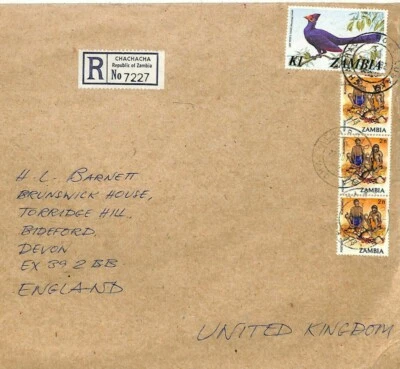 CHACHACHA
Republic of Zambia
R No 7227
K1 ZAMBIA
ZAMBIA
ZAMBIA
ZAMBIA
H. L. BARNETT
BRUNSWICK HOUSE,
TORRIDGE HILL,
BIDEFORD,
DEVON
EX 39 2BB
ENGLAND
UNITED KINGDOM